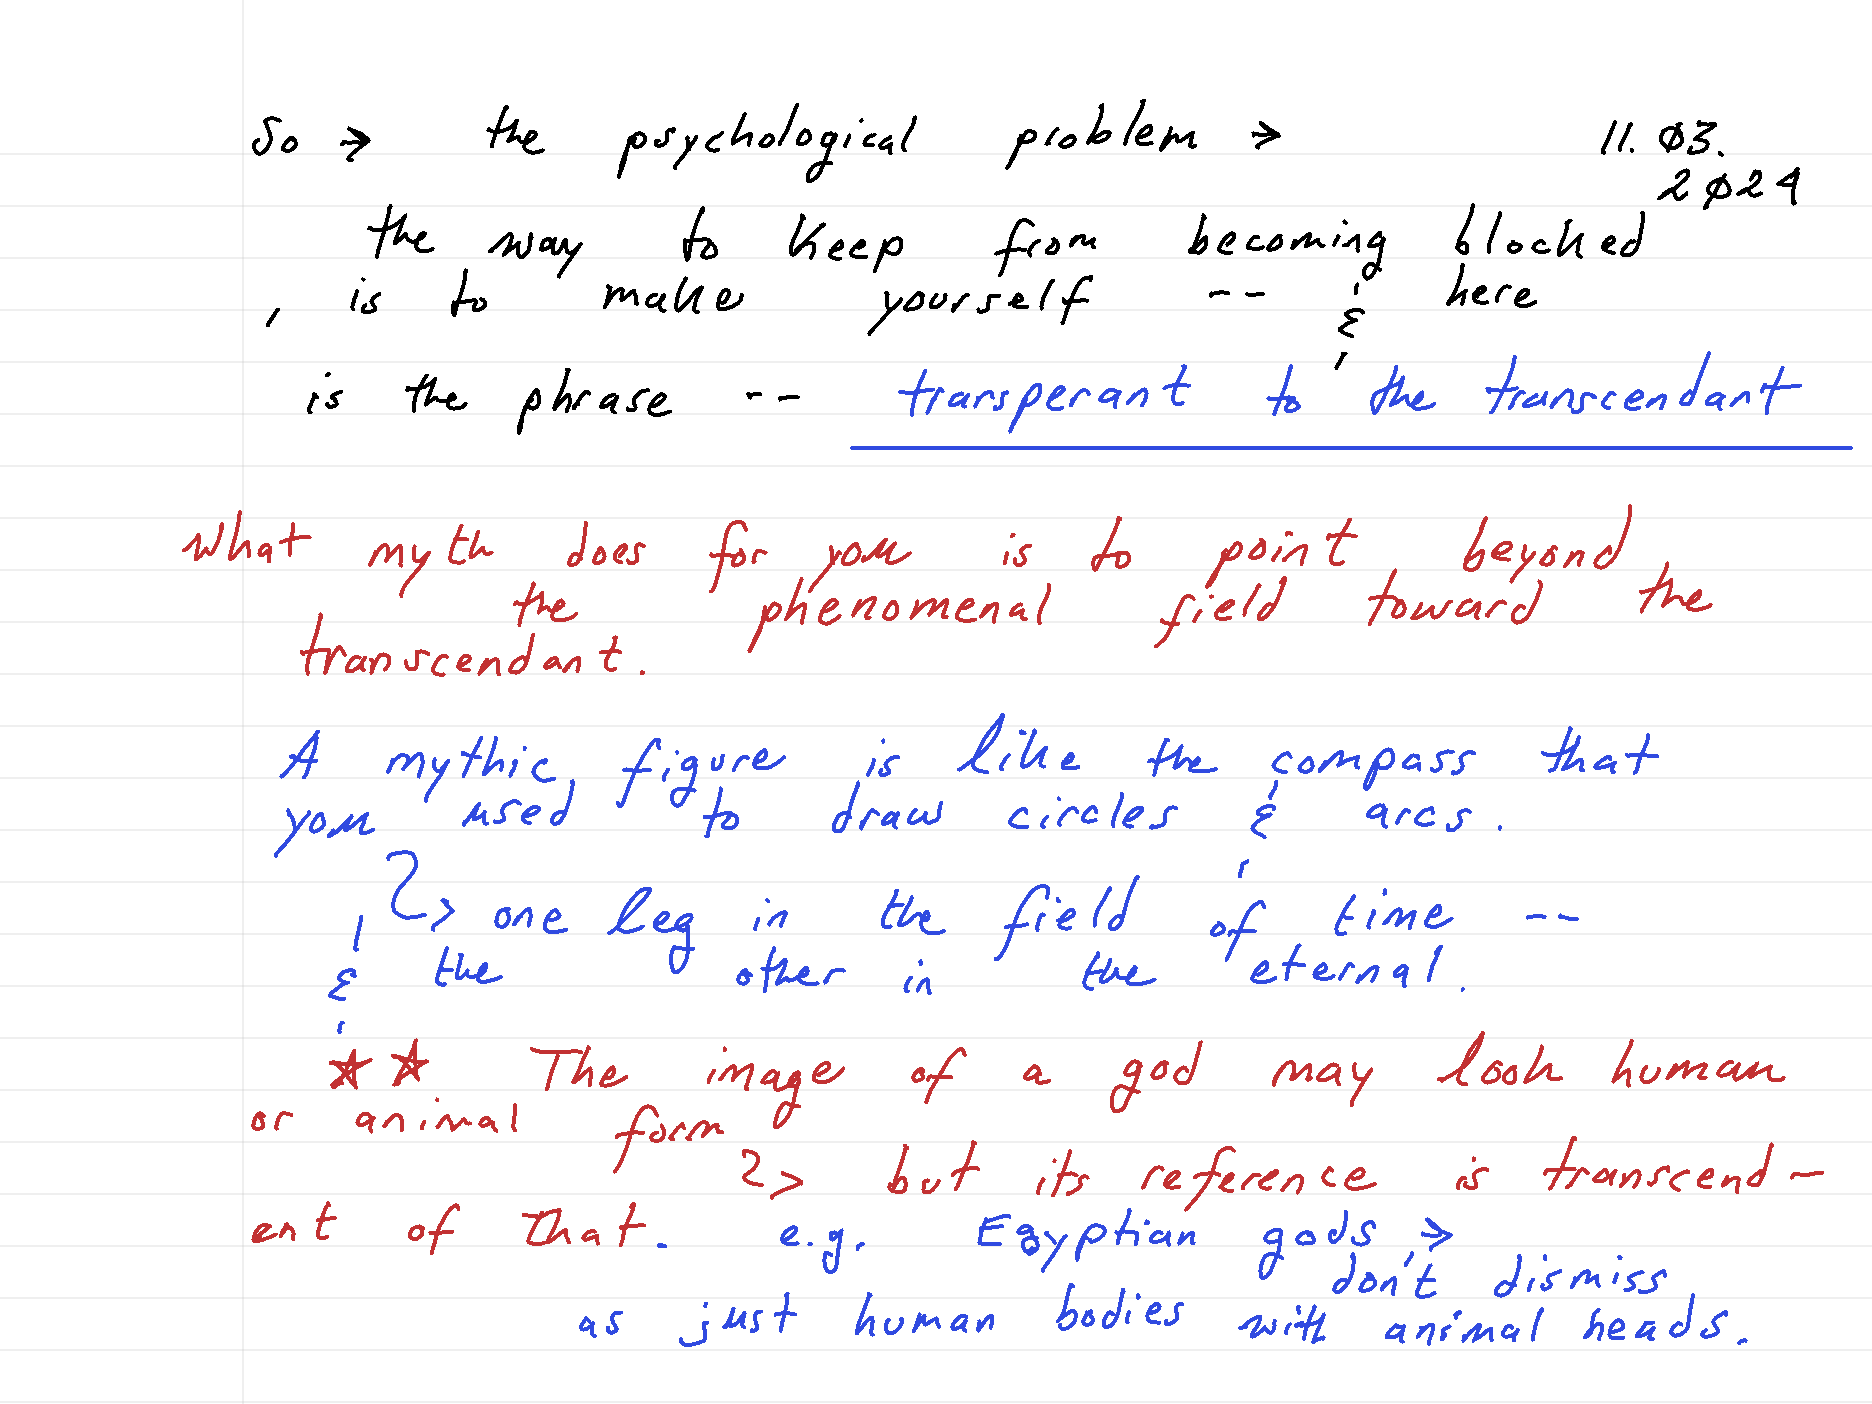 So → the psychological problem → 11.03.
2024
the way to keep from becoming blocked
, is to make yourself -- & here
is the phrase -- transperant to the transcendant
What myth does for you is to point beyond
the phenomenal field toward the
transcendant.
A mythic figure is like the compass that
you used to draw circles & arcs.
→ one leg in the field of time --
& the other in the eternal.
☆☆ The image of a god may look human
or animal form
→ but its reference is transcend-
ent of that. e.g. Egyptian gods →
don't dismiss
as just human bodies with animal heads.